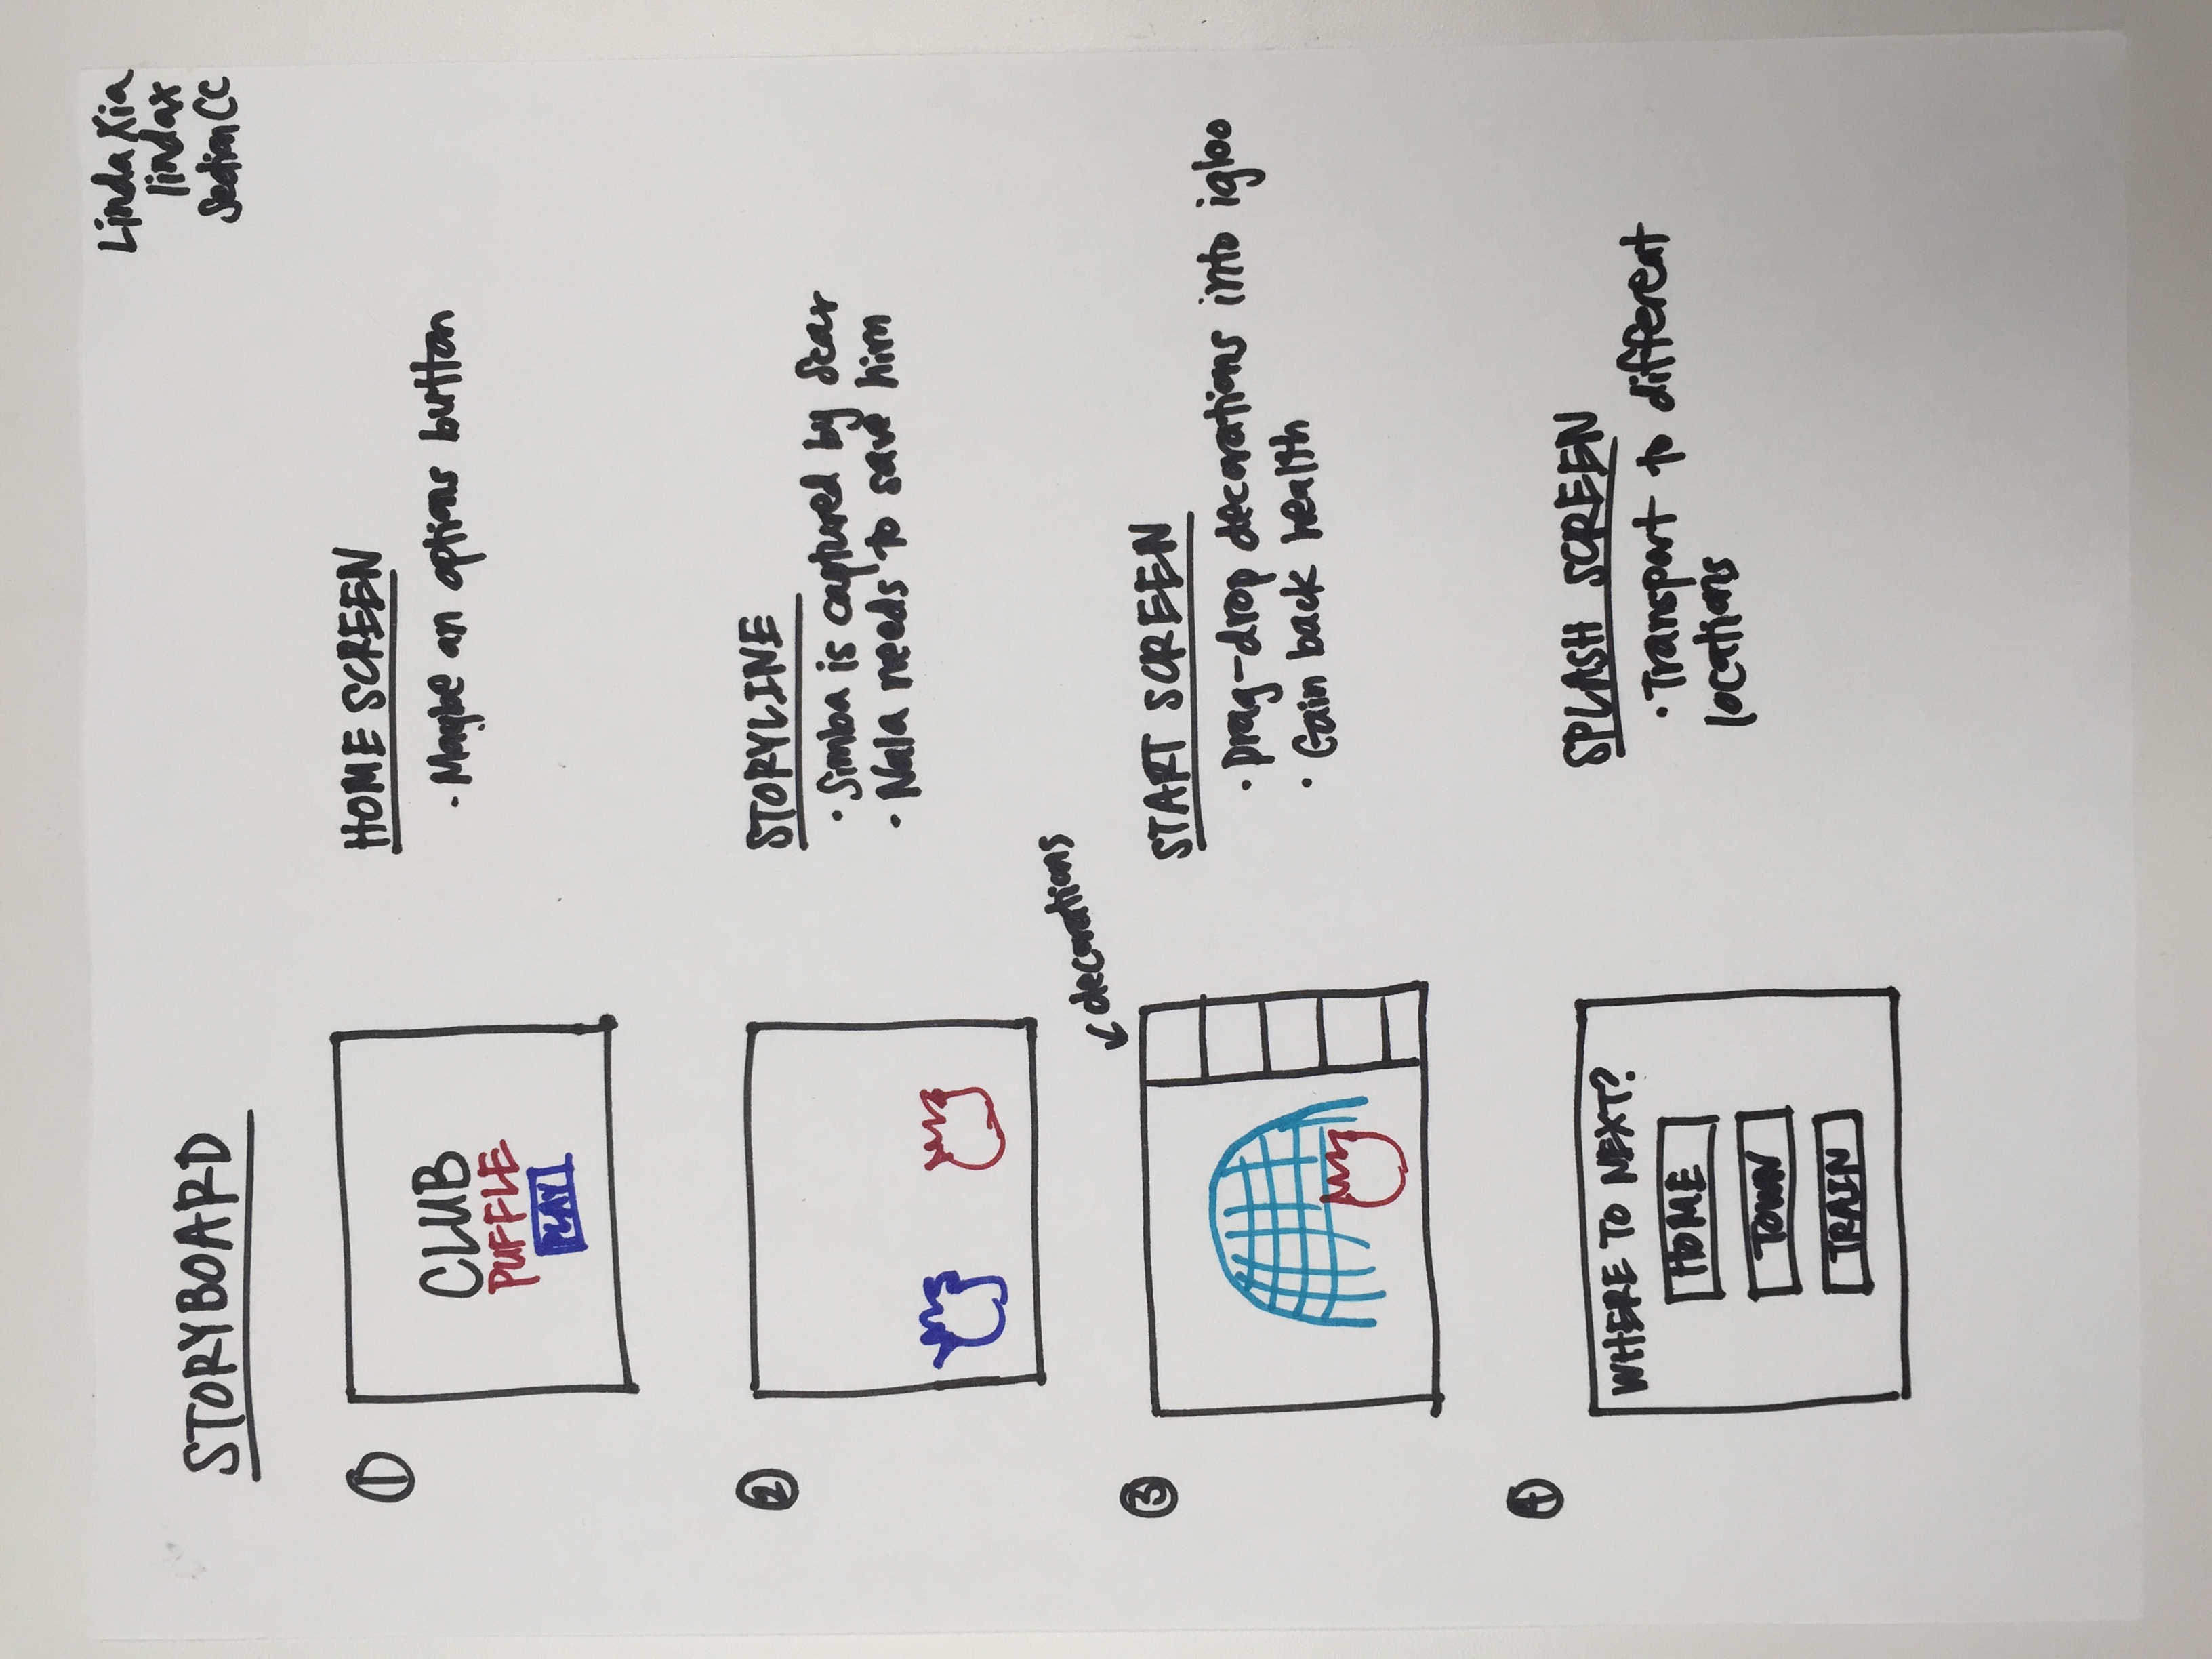 Linda Xia
lindax
Section CC
STORYBOARD
1
CLUB
PUFFLE
PLAY
HOME SCREEN
· Maybe an options button
2
STORYLINE
· Simba is captured by Scar
· Nala needs to save him
3
↙ decorations
START SCREEN
· Drag-drop decorations into igloo
· Gain back health
4
WHERE TO NEXT?
HOME
TOWN
TRAIN
SPLASH SCREEN
· Transport to different
locations